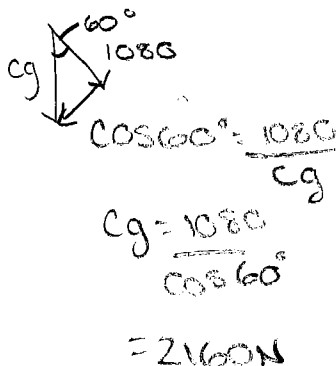 60°
1080
Cg
COS60° = 1080
Cg
Cg = 1080
COS 60°
= 2160N